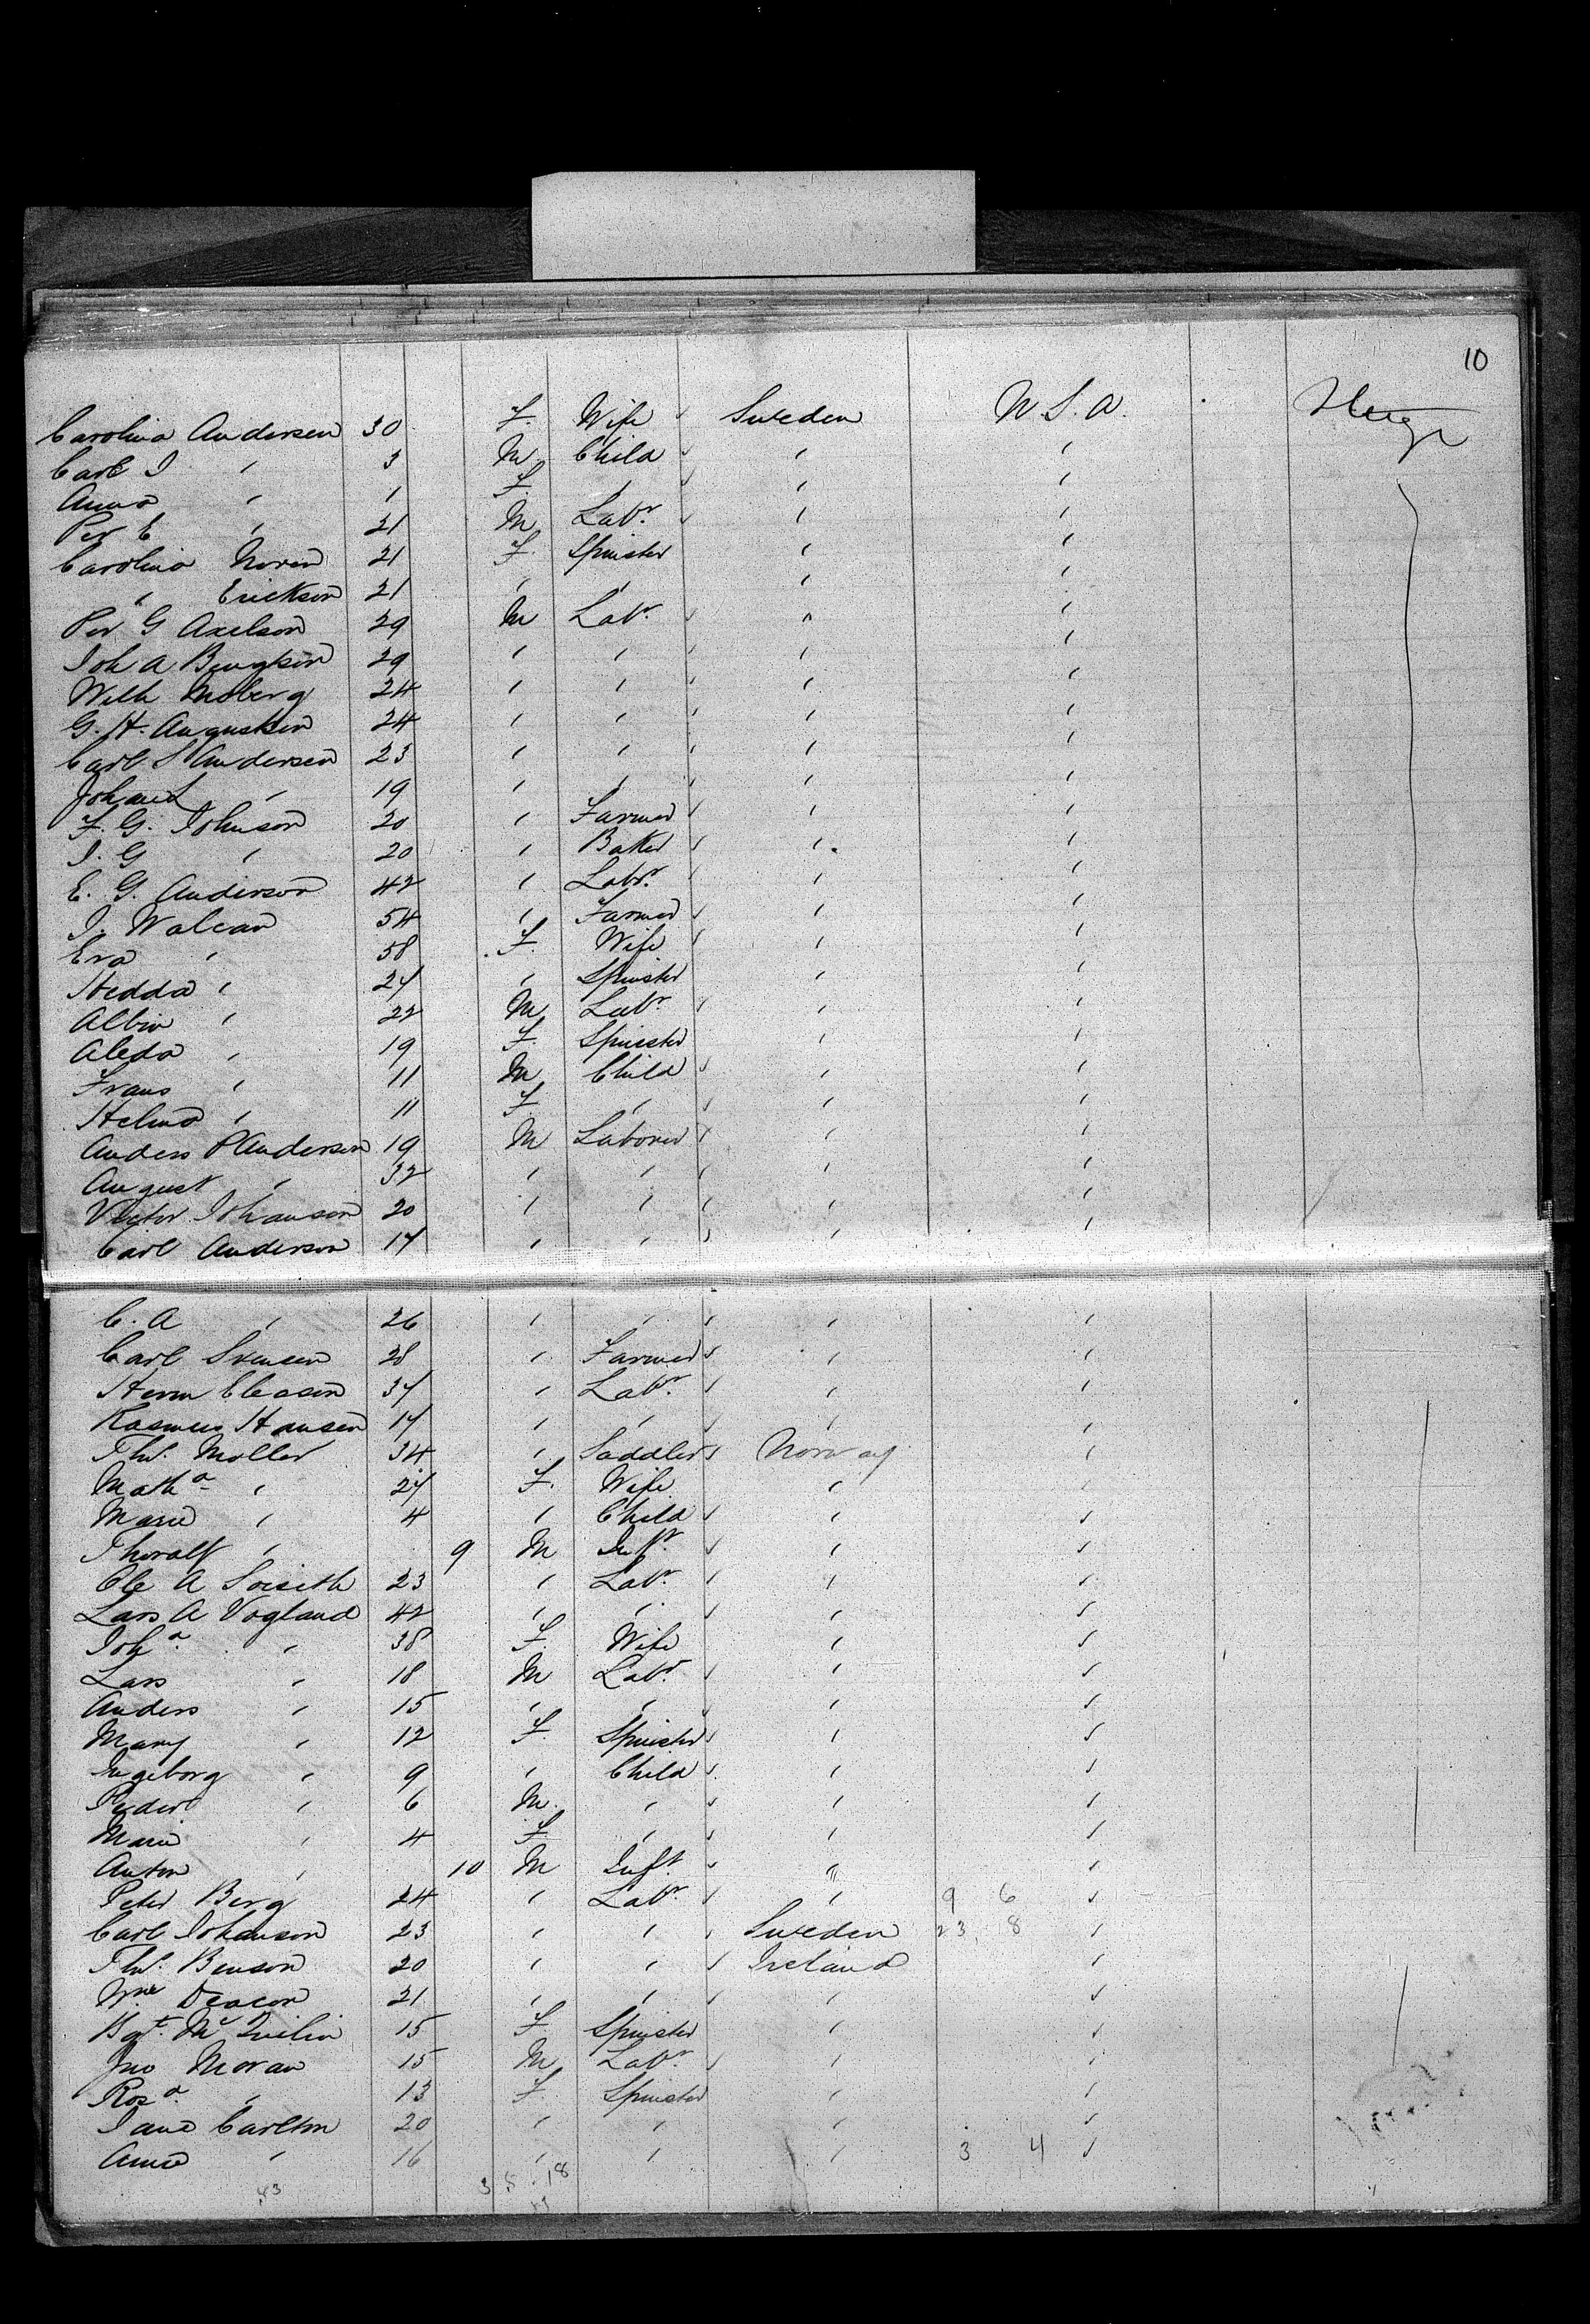 10
Carolina Andersen 30 F. Wife Sweden U S. A.
Carl I " 3 M Child " "
Anna " 1 F. " " "
Per E " 21 M Labr. " "
Carolina Noren 21 F. Spinster " "
" Erickson 21 " " " "
Per G Axelson 29 M Labr. " "
Joh A Bengtson 29 " " " "
Wilh Moberg 24 " " " "
G. H. Augustsen 24 " " " "
Carl S Andersen 23 " " " "
Johan L " 19 " " " "
F. G. Johnson 20 " Farmer " "
I. G " 20 " Baker " "
E. G. Anderson 42 " Labr. " "
J. Walean 54 " Farmer " "
Eva " 58 F. Wife " "
Hedda " 27 " Spinster " "
Albin " 22 M Labr. " "
Aleda " 19 F. Spinster " "
Frans " 11 M Child " "
Helma " 11 F. " " "
Anders P Andersen 19 M Laborer " "
August " 32 " " " "
Victor Johanson 20 " " " "
Carl Anderson 17 " " " "
C. A " 26 " " " "
Carl Svensen 28 " Farmer " "
Herm Cleasen 37 " Labr. " "
Rasmus Hansen 17 " " " "
Thr. Moller 34 " Saddler Norway "
Matha " 27 F. Wife " "
Marie " 4 " Child " "
Thoralf " 9 M Inft. " "
Ole A Soiseth 23 " Labr. " "
Lars A Vogland 42 " " " "
Joha. " 38 F. Wife " "
Lars " 18 M Labr. " "
Anders " 15 " " " "
Mary " 12 F. Spinster " "
Ingeborg " 9 " Child " "
Peder " 6 M. " " "
Marie " 4 F. " " "
Anton " 10 M Inft. " "
Peter Berg 24 " Labr. " 9 6 "
Carl Johanson 23 " " Sweden 23 8 "
Thr. Benson 20 " " Ireland "
Wm Deacon 21 " " " "
Bgt. Mc Quilin 15 F. Spinster " "
Jno Moran 15 M Labr. " "
Rosa. " 13 F. Spinster " "
Jane Carlton 20 " " " "
Annie " 16 " " " 3 4 "
43 3 5 18